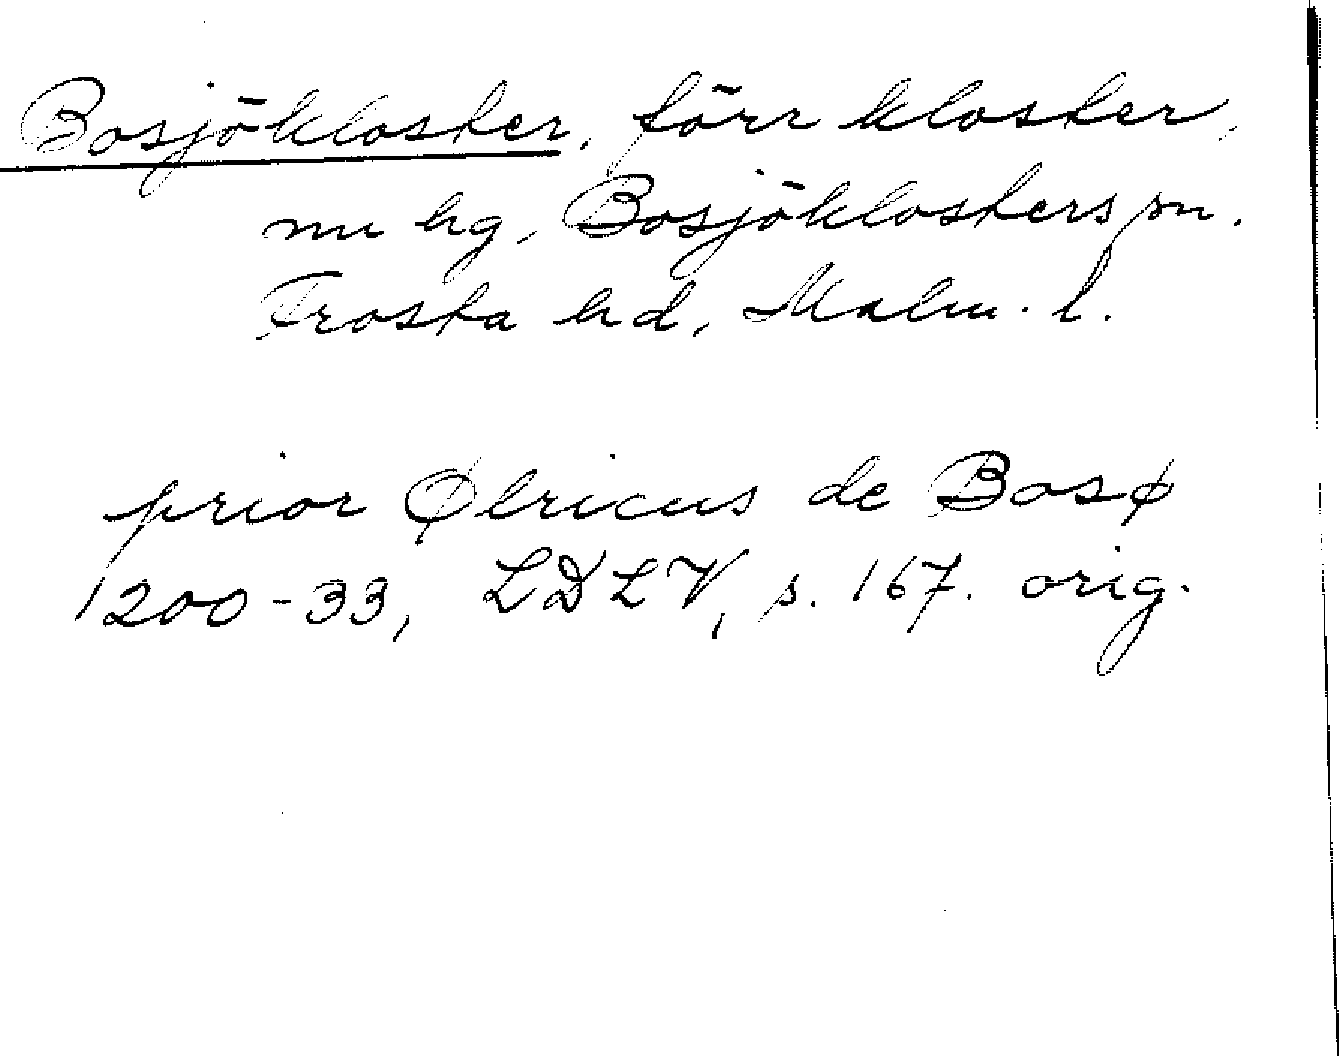 Bosjökloster, förr kloster,
nu hg, Bosjöklosters sn.
Frosta hd, Malm. l.
prior Ølricus de Bosø
1200-33, LDLV, s. 167. orig.